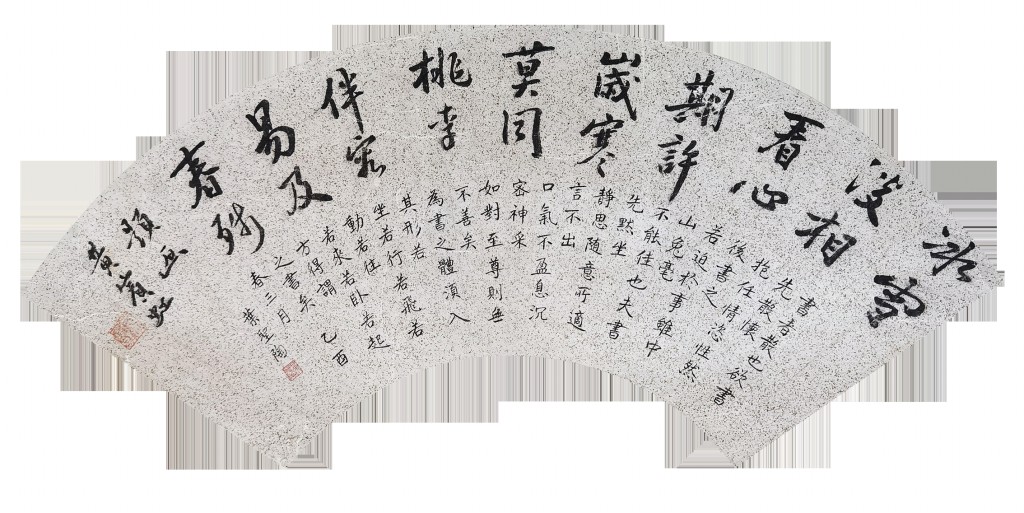 冰雪
没相
看心
期許
歲寒
莫同
桃李
伴容
易及
春殘
題画
黃賓虹
書者散也欲書
先散懷
抱任情恣性然
後書之
若迫於事雖中
山兔毫
不能佳也夫書
先默坐
靜思隨意所適
言不出
口氣不盈息沉
密神采
如對至尊則無
不善矣
為書之體須入
其形若
坐若行若飛若
動若往
若來若臥若起
方得謂
之書矣 乙酉
春三月葉聖陶